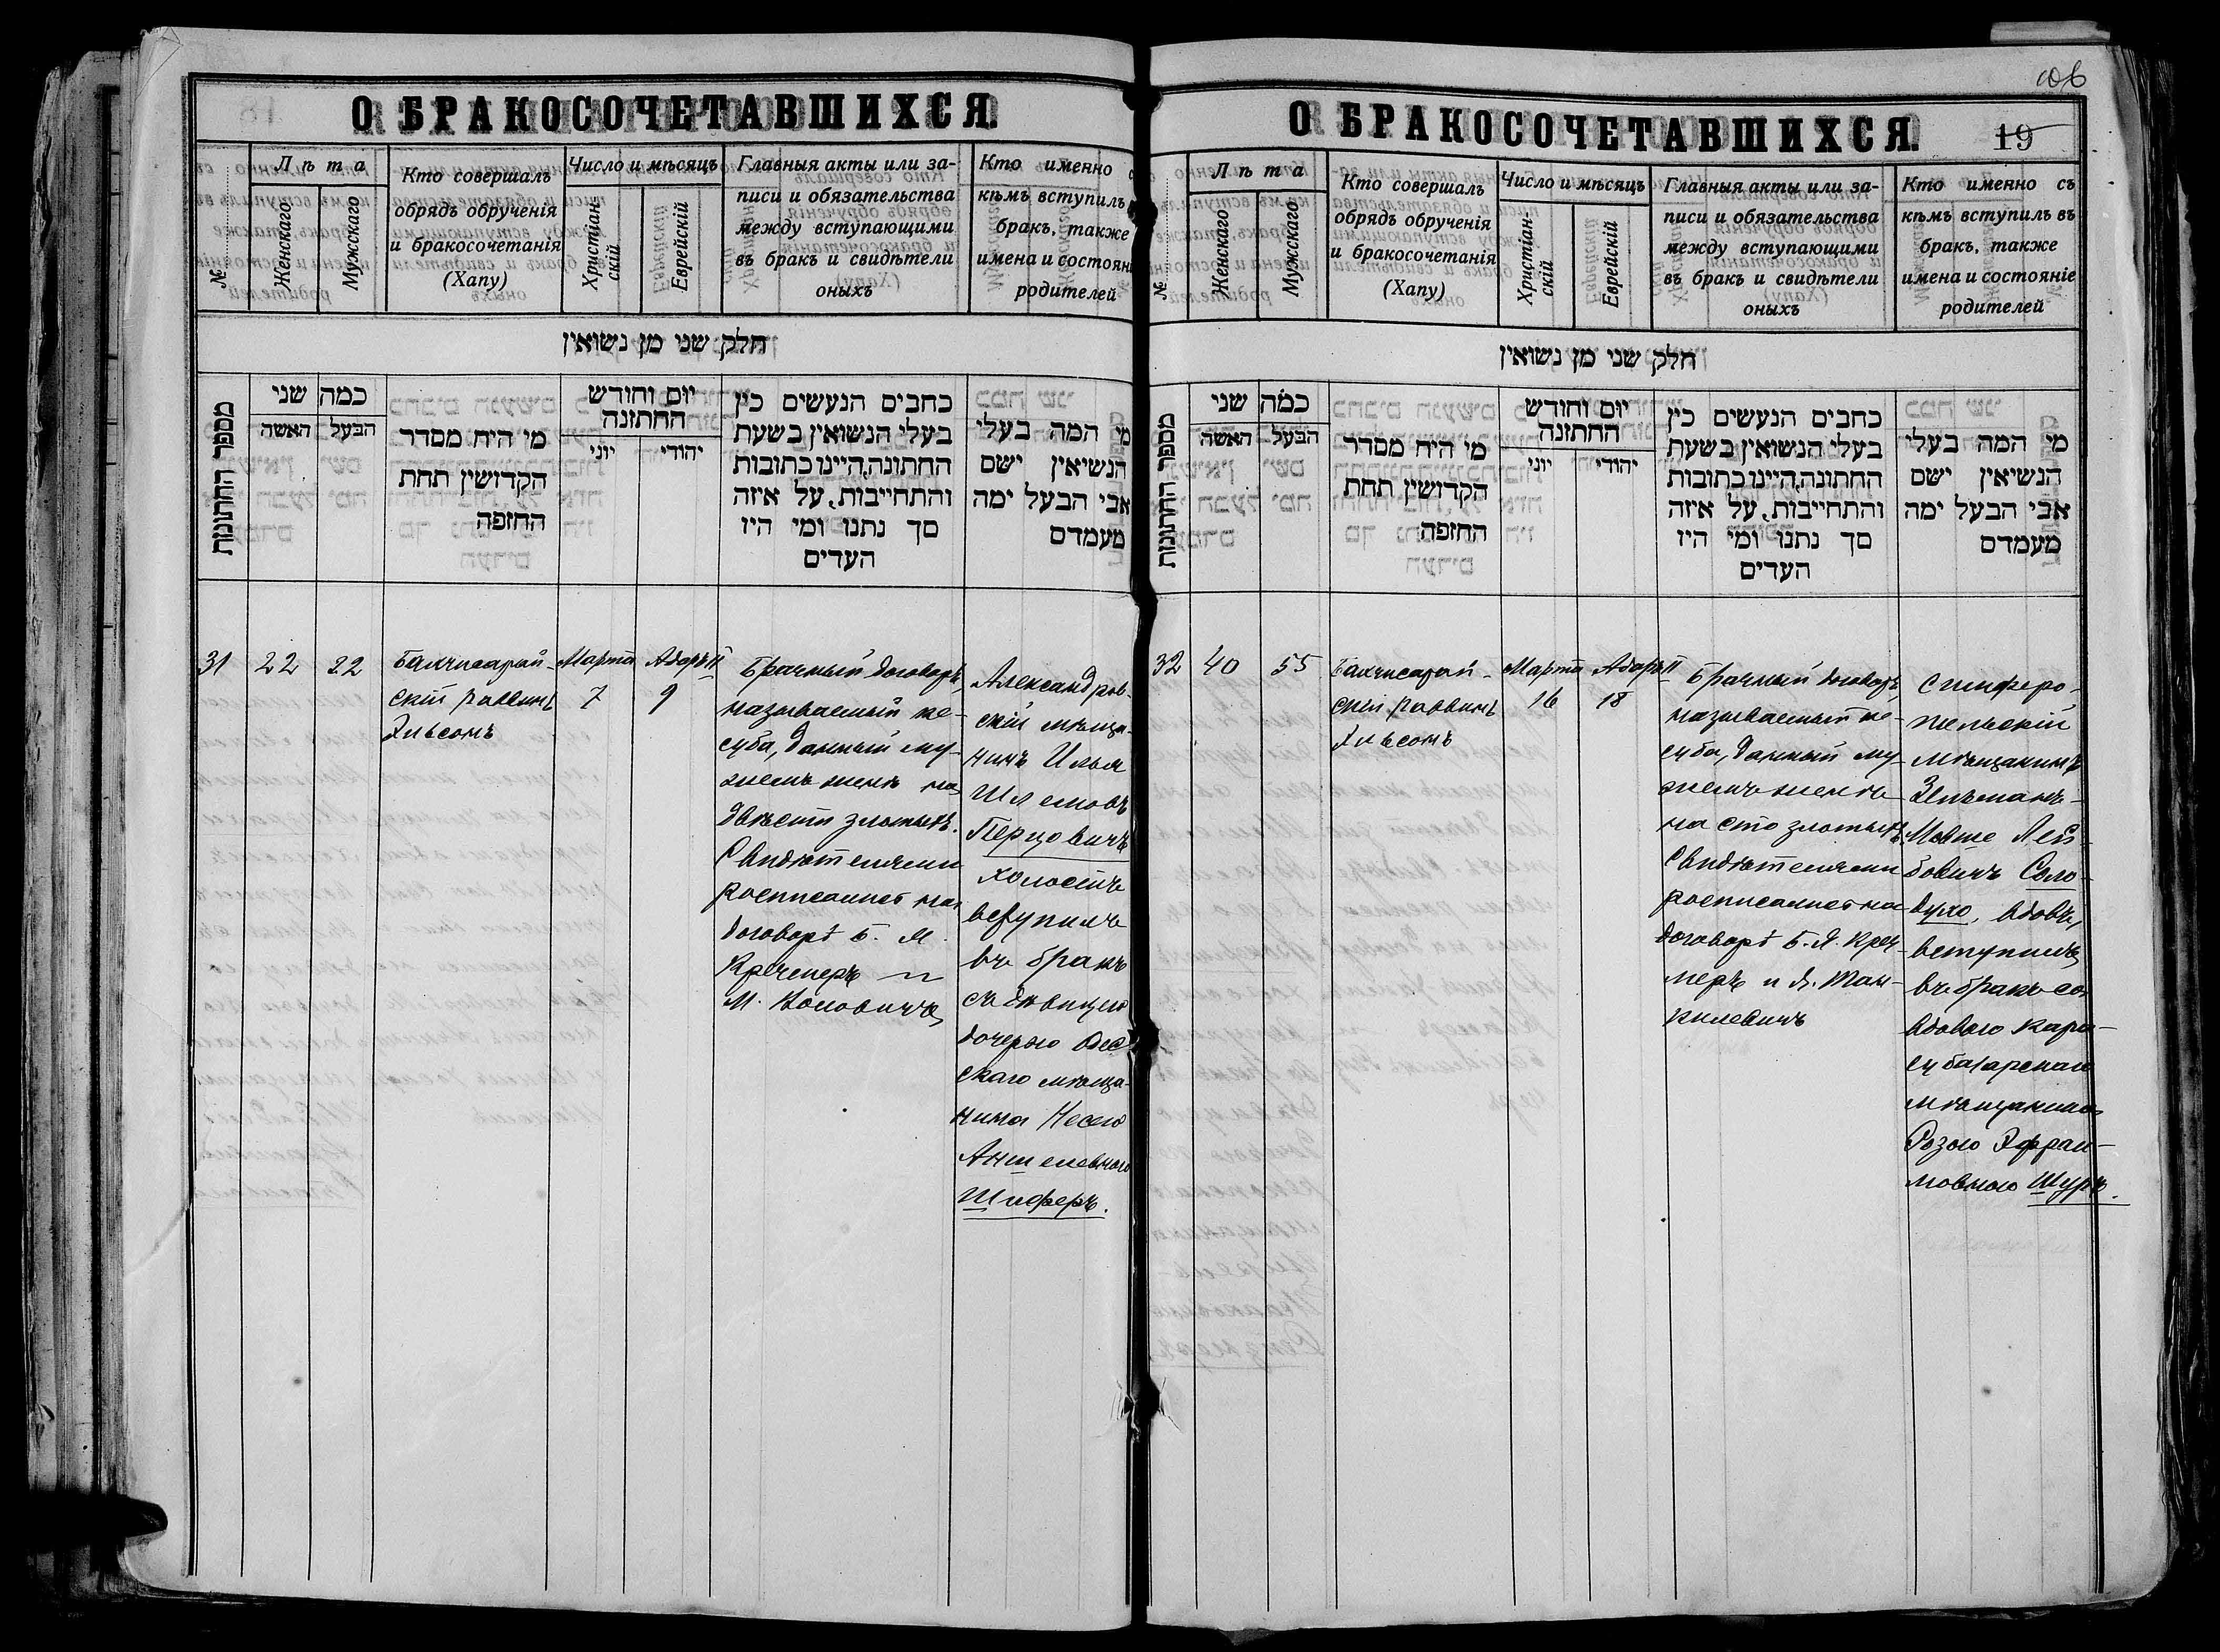 О БРАКОСОЧЕТАВШИХСЯ.
№
Лѣта
Женскаго
Мужскаго
Кто совершалъ
обрядъ обрученія
и бракосочетанія
(Хапу)
Число и мѣсяцъ
Христіан-
скій
Еврейскій
Главныя акты или за-
писи и обязательства
между вступающими
въ бракъ и свидѣтели
оныхъ
Кто именно
кѣмъ вступилъ
бракъ, также
имена и состоян
родителей
חלק שני מן נשואין
מספר החתונות
כמה שני
האשה
הבעל
מי היח מסדר
הקדושין תחת
החופה
יום וחודש
החתונה
יוני
יהודי
כחבים הנעשים כין
בעלי הנשואין בשעת
החתונה, היינו כתובות
והתחייבות, על איזה
סך נתנו ומי היו
העדים
מי המה בעלי
הנשיאין ישם
אבי הבעל ימה
מעמדם
31
22
22
Бахчисарай-
скій раввинъ
Эльсонъ
Марта
7
Адаръ II
9
Брачный договоръ,
называемый ке-
суба, данный му-
жемъ женѣ на
двѣсти злотыхъ.
Свидѣтелями
росписались на
договорѣ Б. Я.
Кремеръ и
М.
Александров-
скій мѣща-
нинъ Илья
Шлемовъ
Перцовичъ
холостъ
вступилъ
въ бракъ
съ дѣвицею
дочерью Одес
скаго мѣща-
нина Несею
Аншелевною
Шиферъ.
О БРАКОСОЧЕТАВШИХСЯ.
19
106
№
Лѣта
Женскаго
Мужскаго
Кто совершалъ
обрядъ обрученія
и бракосочетанія
(Хапу)
Число и мѣсяцъ
Христіан-
скій
Еврейскій
Главныя акты или за-
писи и обязательства
между вступающими
въ бракъ и свидѣтели
оныхъ
Кто именно съ
кѣмъ вступилъ въ
бракъ, также
имена и состояніе
родителей
חלק שני מן נשואין
מספר החתונות
כמה שני
האשה
הבעל
מי היח מסדר
הקדושין תחת
החופה
יום וחודש
החתונה
יוני
יהודי
כחבים הנעשים כין
בעלי הנשואין בשעת
החתונה, היינו כתובות
והתחייבות, על איזה
סך נתנו ומי היו
העדים
מי המה בעלי
הנשיאין ישם
אבי הבעל ימה
מעמדם
32
40
55
Бахчисарай-
скій раввинъ
Эльсонъ
Марта
16
Адаръ II
18
Брачный договоръ,
называемый ке-
суба, данный му-
жемъ женѣ
на сто злотыхъ
Свидѣтелями
росписались на
договорѣ Б. Я. Кре-
меръ и Я. Ман-
килевичъ
Симферо-
польскій
мѣщанинъ
Зельманъ-
Мовше Лей-
бовичъ Соло-
духо, вдовъ,
вступилъ
въ бракъ со
вдовою Кара-
субазарскаго
мѣщанина
Розою Эфраи-
мовною Шуръ.